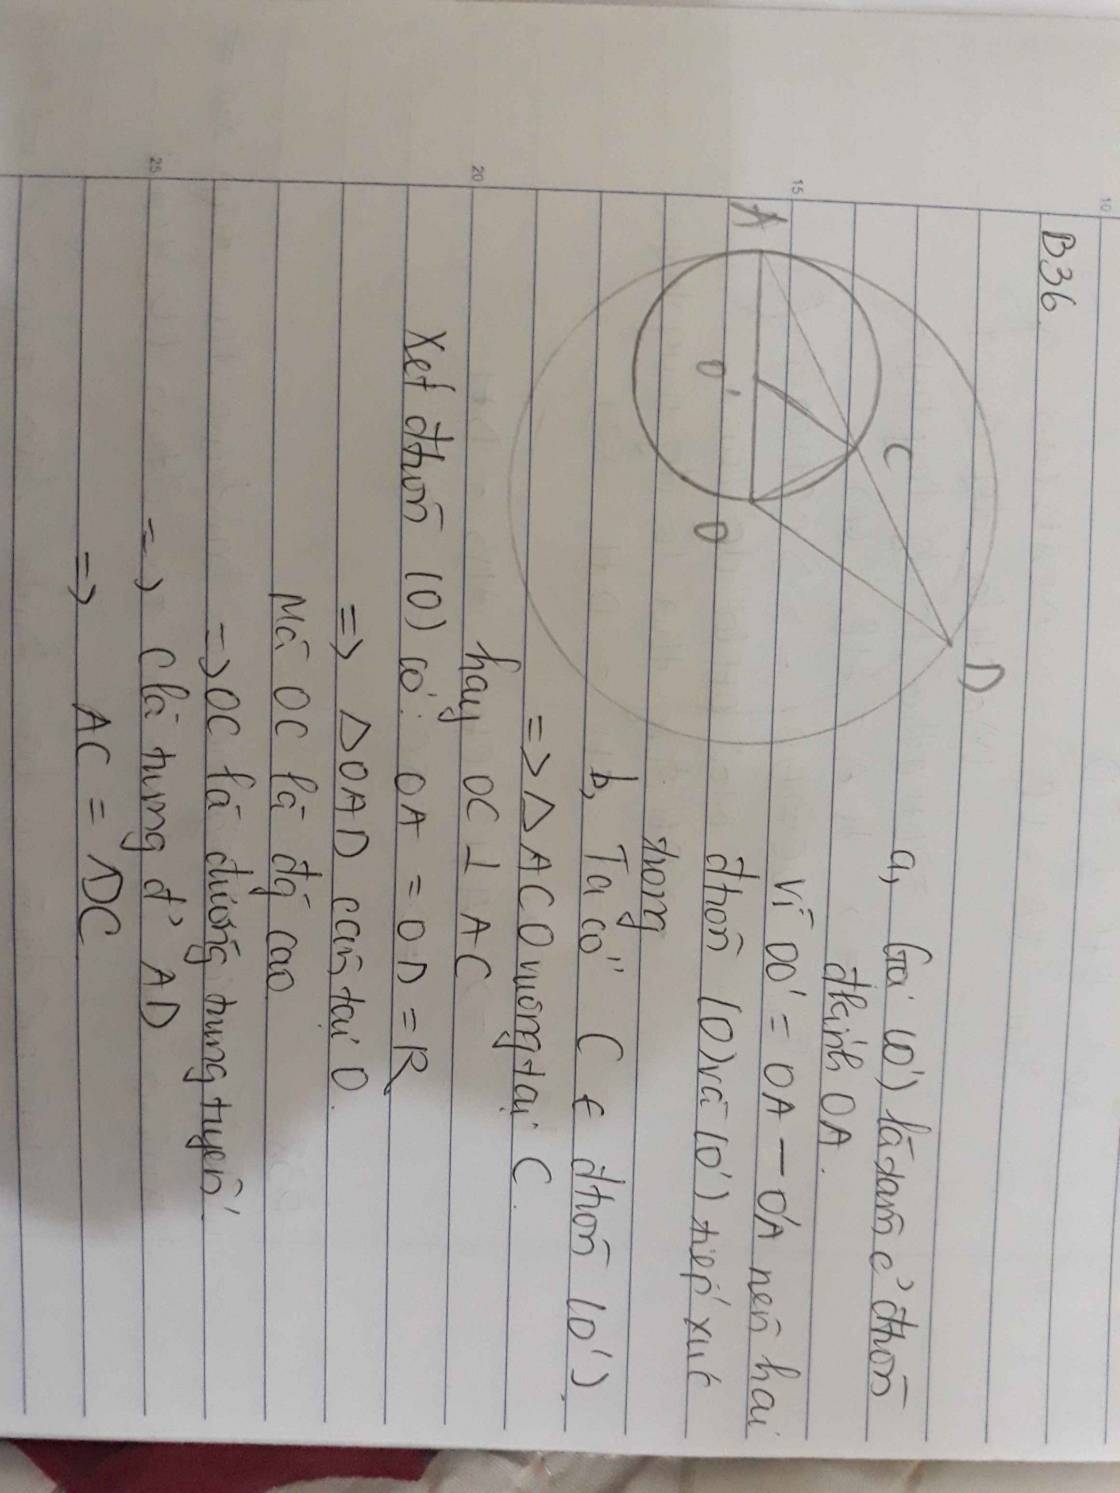 B36.
A
O'
O
C
D
a, Gọi (O') là tâm c' đtròn
đkính OA.
Vì OO' = OA - O'A nên hai
đtròn (O) và (O') tiếp xúc
trong
b, Ta có C ∈ đtròn (O')
=> Δ ACO vuông tại C.
hay OC ⊥ AC
Xét đtròn (O) có: OA = OD = R
=> Δ OAD cân tại O.
Mà OC là đg cao
=> OC là đường trung tuyến
=> C là trung đ' AD
=> AC = DC
10
15
20
25